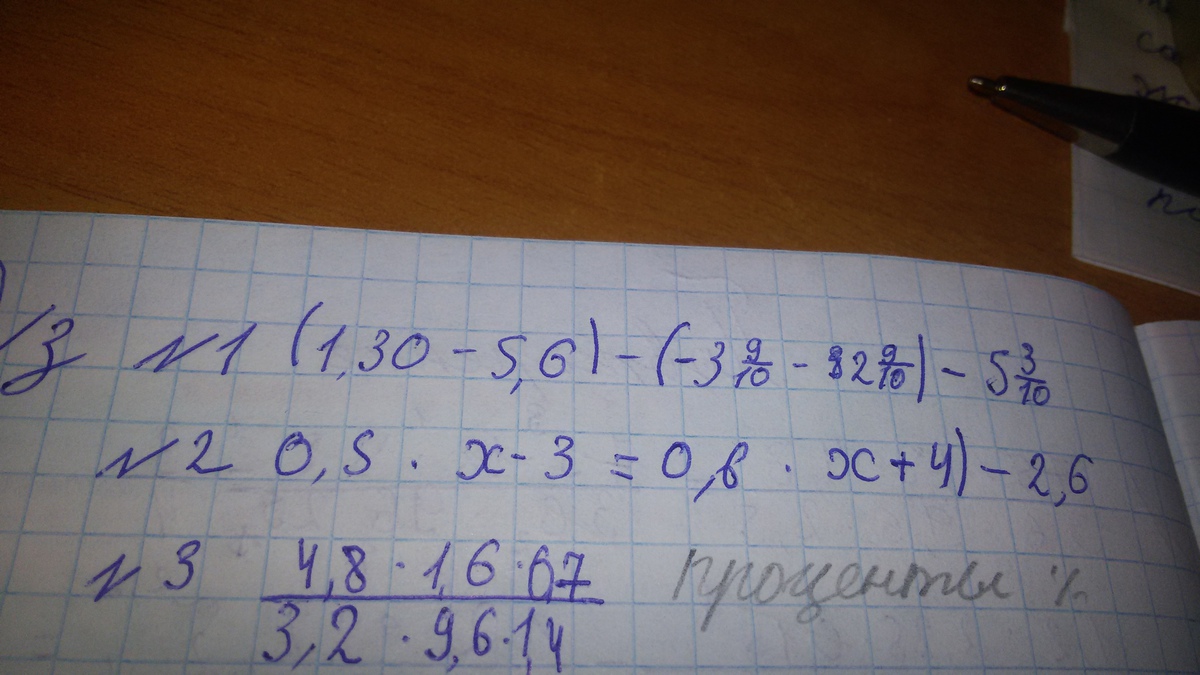 /з №1 (1,30 - 5,6) - (-3 9/10 - 2 9/10) - 5 3/10
№2 0,5 · x - 3 = 0,6 · x + 4) - 2,6
№3 4,8 · 1,6 · 0,7 / 3,2 · 9,6 · 1,4 проценты %